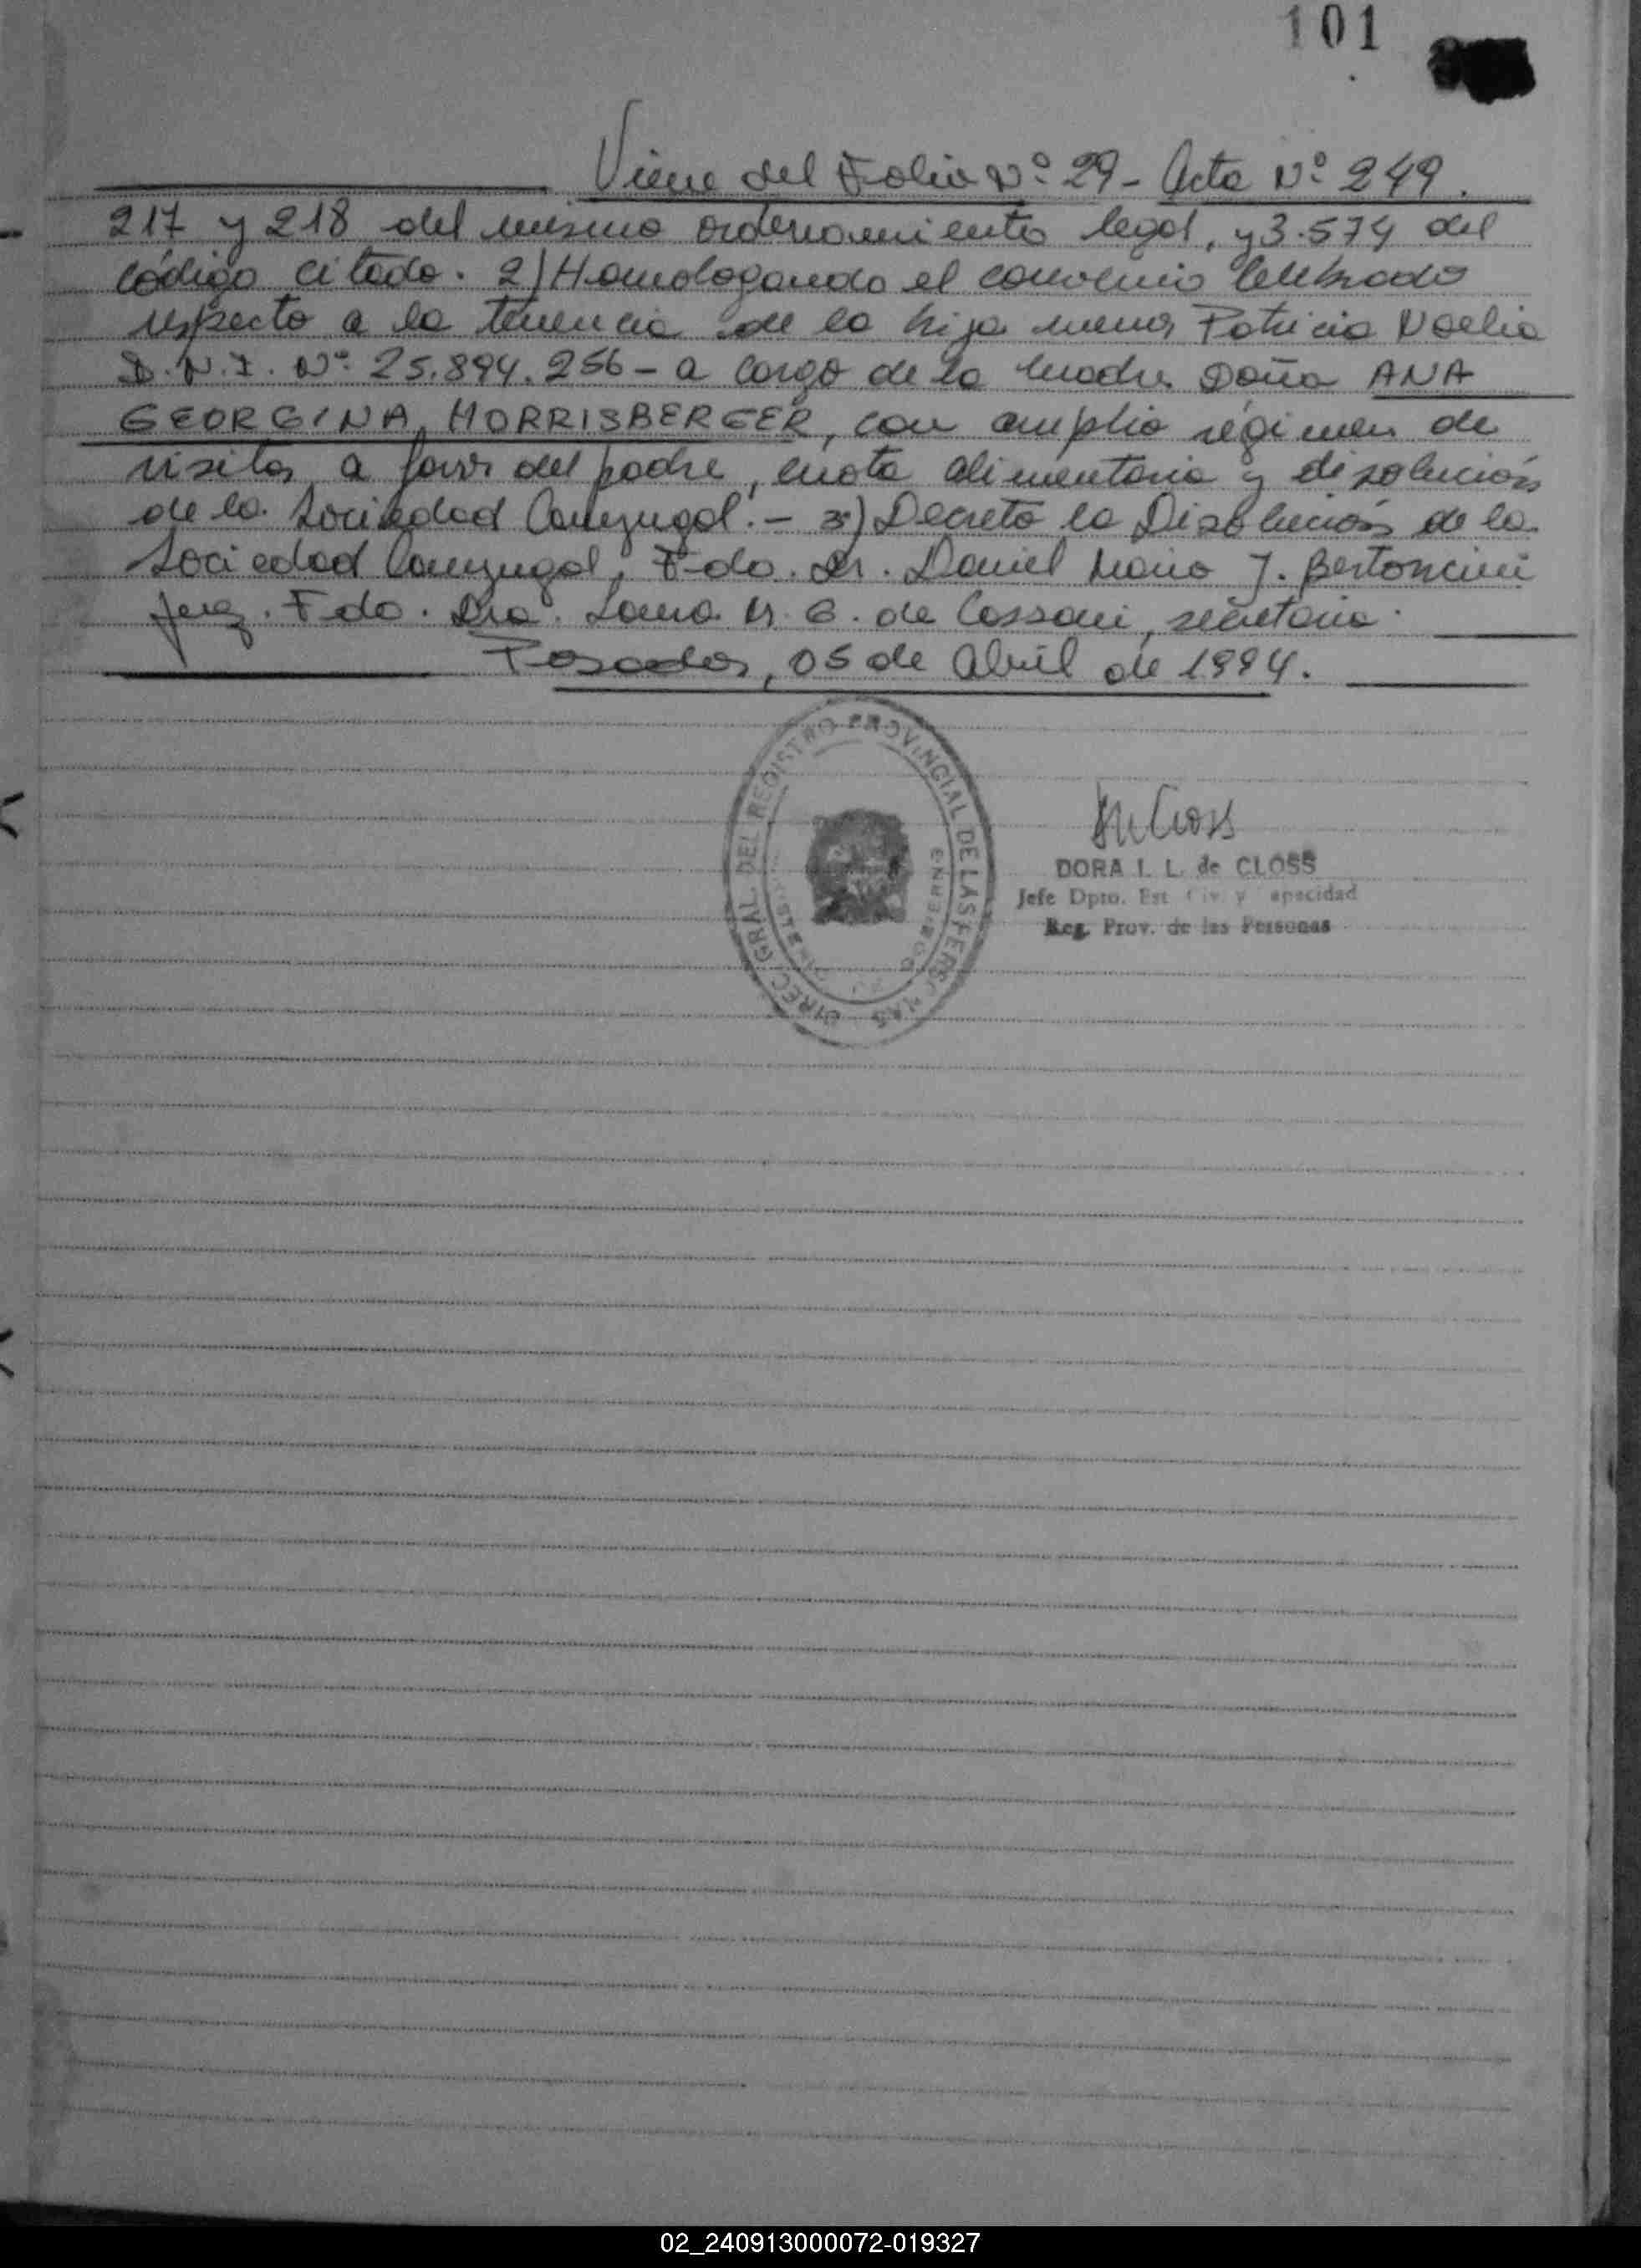 101
Viene del Folio Nº 29 - Acta Nº 249.
217 y 218 del mismo ordenamiento legal, y 3.574 del
código citado. 2) Homologando el convenio celebrado
respecto a la tenencia de la hija menor Patricia Noelia
D.N.I. Nº 25.894.256 - a cargo de la madre Doña ANA
GEORGINA HORRISBERGER, con amplio régimen de
visitas a favor del padre, cuota alimentaria y disolución
de la Sociedad Conyugal. - 3º) Decreto la Disolución de la
Sociedad Conyugal, Fdo. Dr. Daniel Mario J. Bertoncini
Juez. Fdo. Dra. de Cassani, secretaria.
Posadas, 05 de Abril de 1994.
DIREC. GRAL DEL REGISTRO PROVINCIAL DE LAS PERSONAS
DORA I. L. de CLOSS
Jefe Dpto. Est Civ. y apacidad
Reg. Prov. de las Personas
02_240913000072-019327